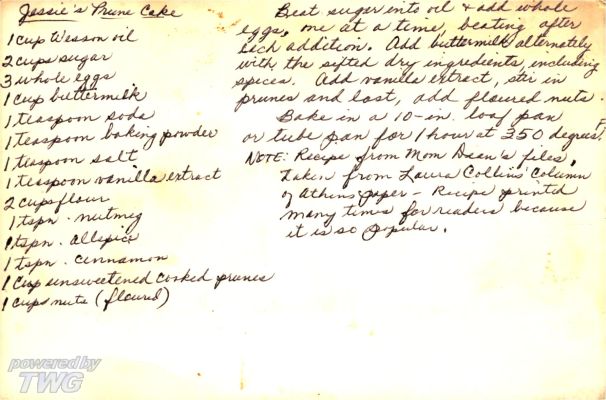 Jessie's Prune Cake
1 cup Wesson oil
2 cups sugar
3 whole eggs
1 cup buttermilk
1 teaspoon soda
1 teaspoon baking powder
1 teaspoon salt
1 teaspoon vanilla extract
2 cups flour
1 tspn. nutmeg
1 tspn. allspice
1 tspn. cinnamon
1 cup unsweetened cooked prunes
1 cups nuts (floured)
Beat sugar into oil & add whole
eggs, one at a time, beating after
each addition. Add buttermilk alternately
with the sifted dry ingredients, including
spices. Add vanilla extract, stir in
prunes and last, add floured nuts.
Bake in a 10-in. loaf pan
or tube pan for 1 hour at 350 degrees F.
NOTE: Recipe from Mom Dean's files,
Taken from Laura Collins' Column
of Athens paper - Recipe printed
many times for readers because
it is so popular.
powered by
TWG